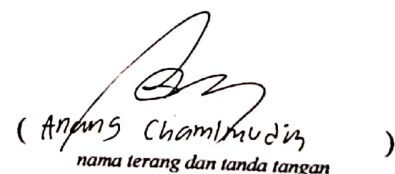 ( Anang Chamimudin )
nama terang dan tanda tangan